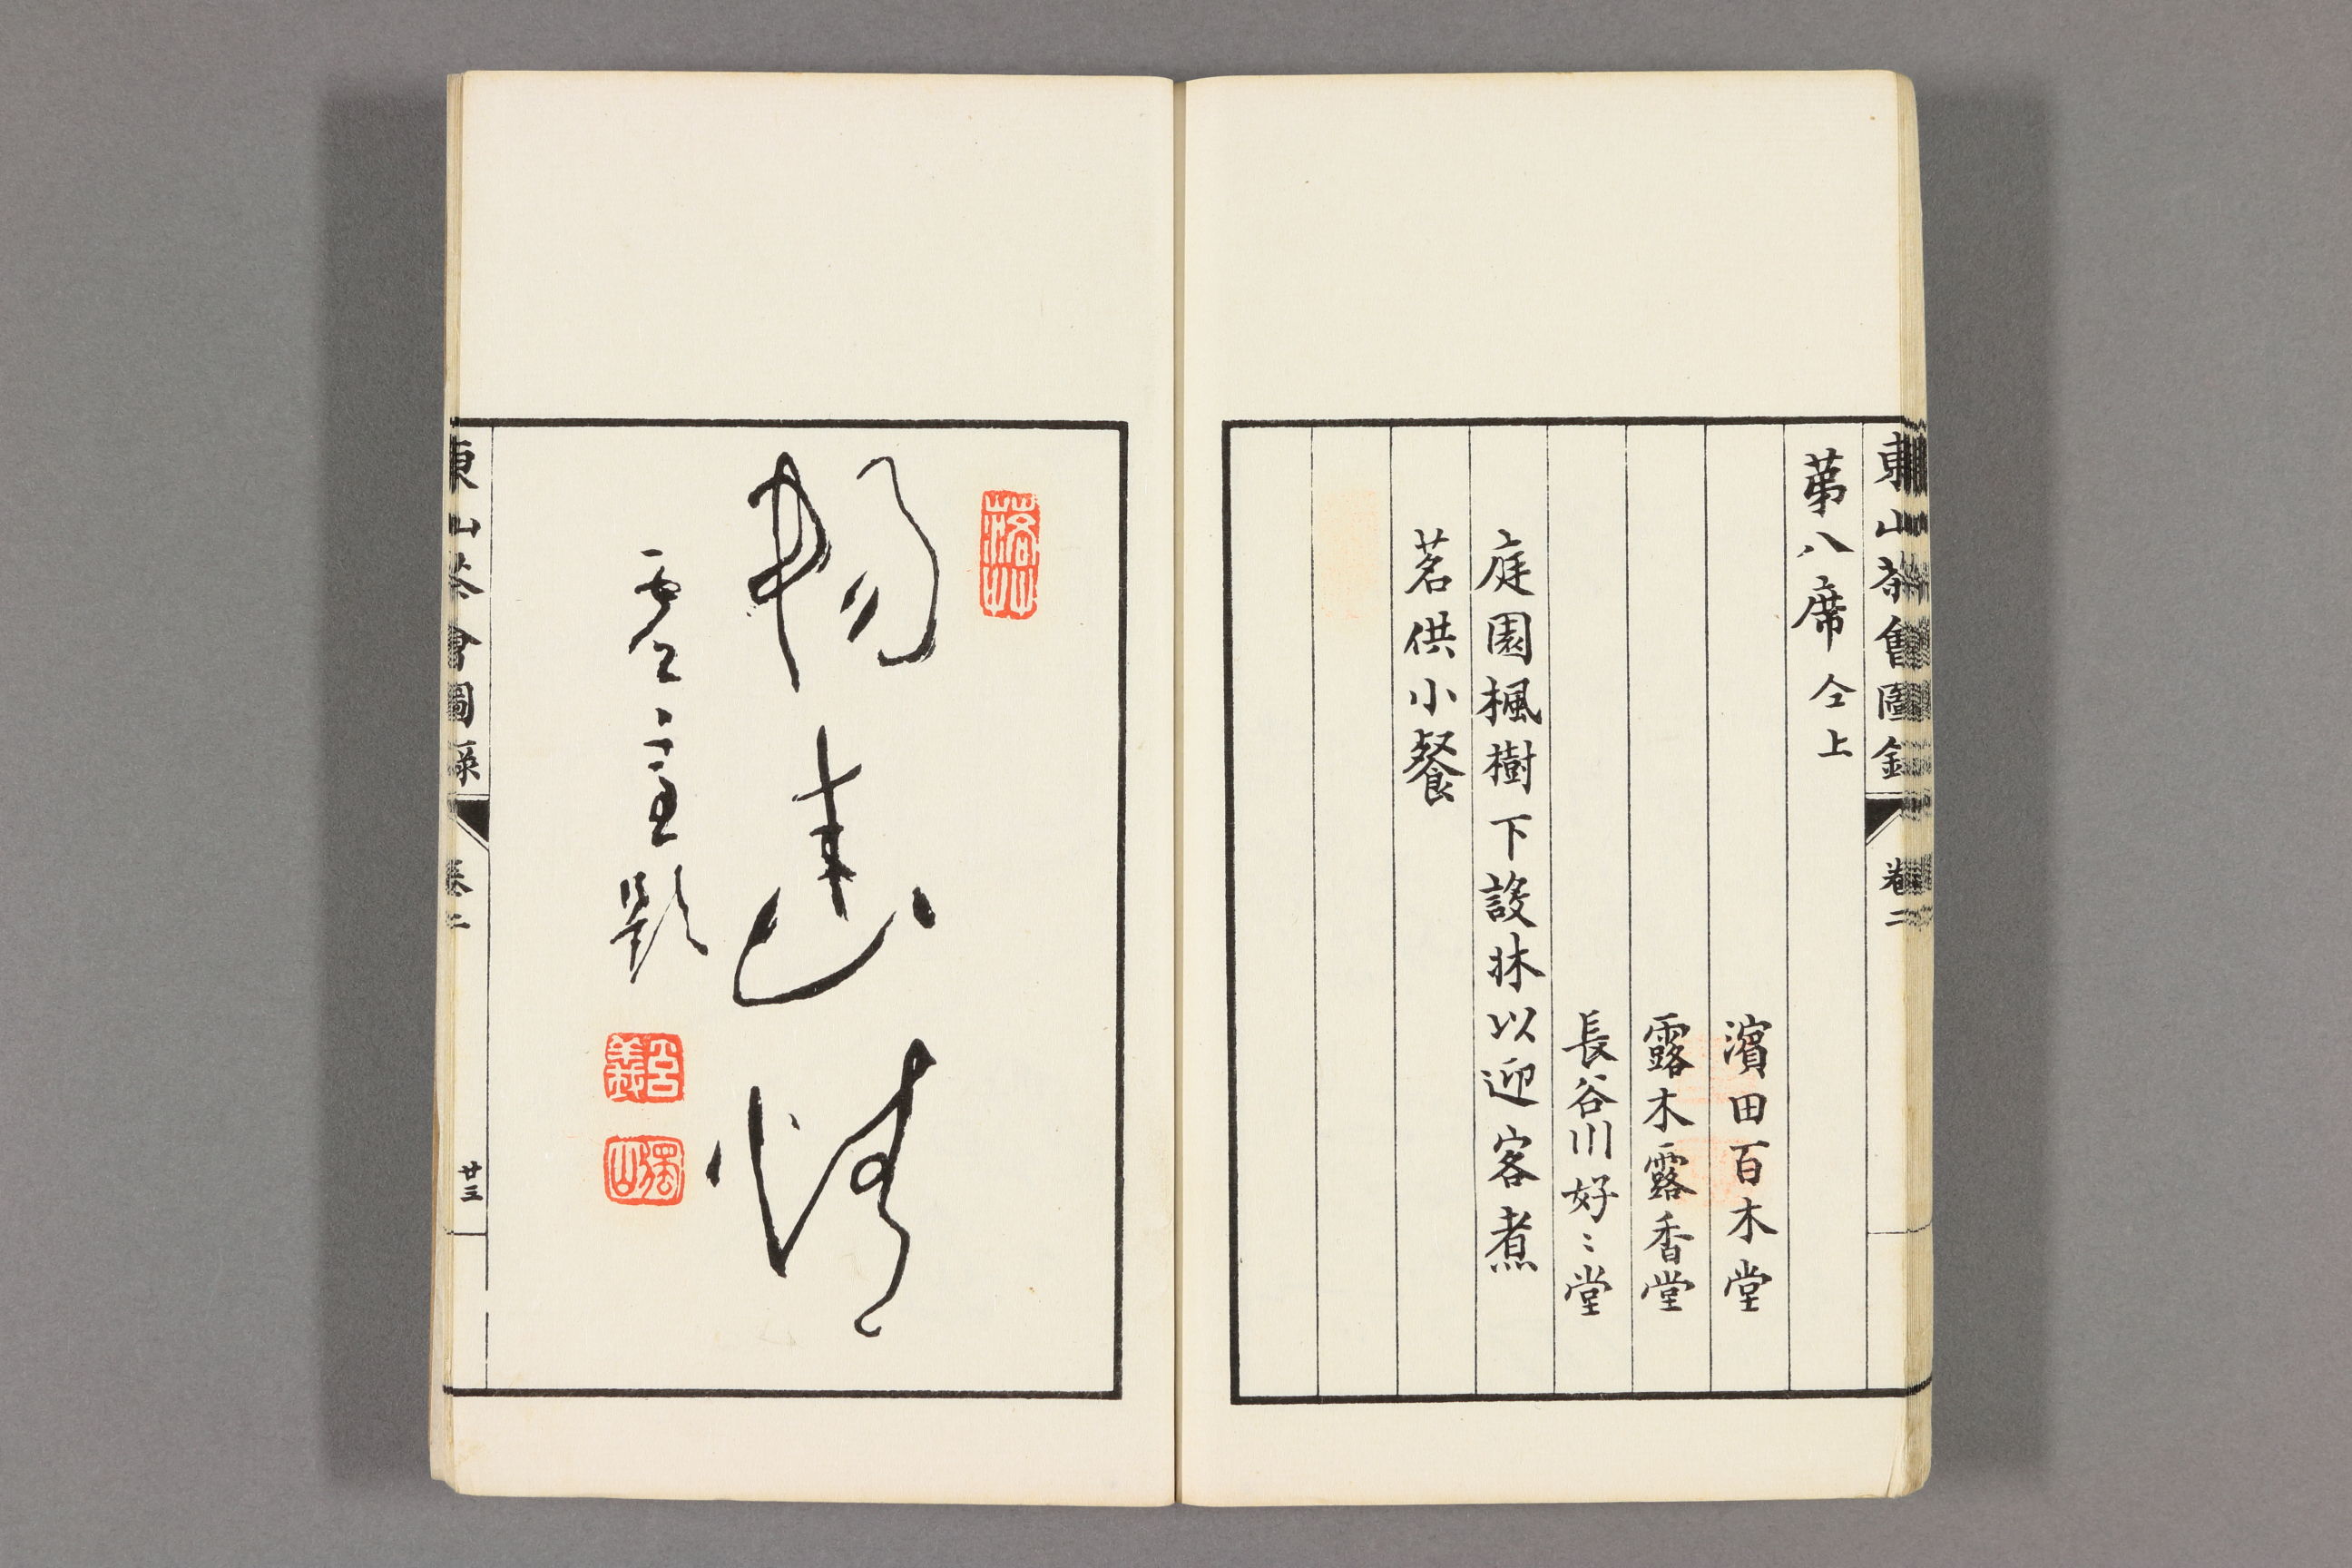 東山茶會圖録
卷二
第八席 仝上
濱田百木堂
露木露香堂
長谷川好〻堂
庭園楓樹下設牀以迎客煮
茗供小餐
暢遠情
題
東山茶會圖録
卷二
廿三